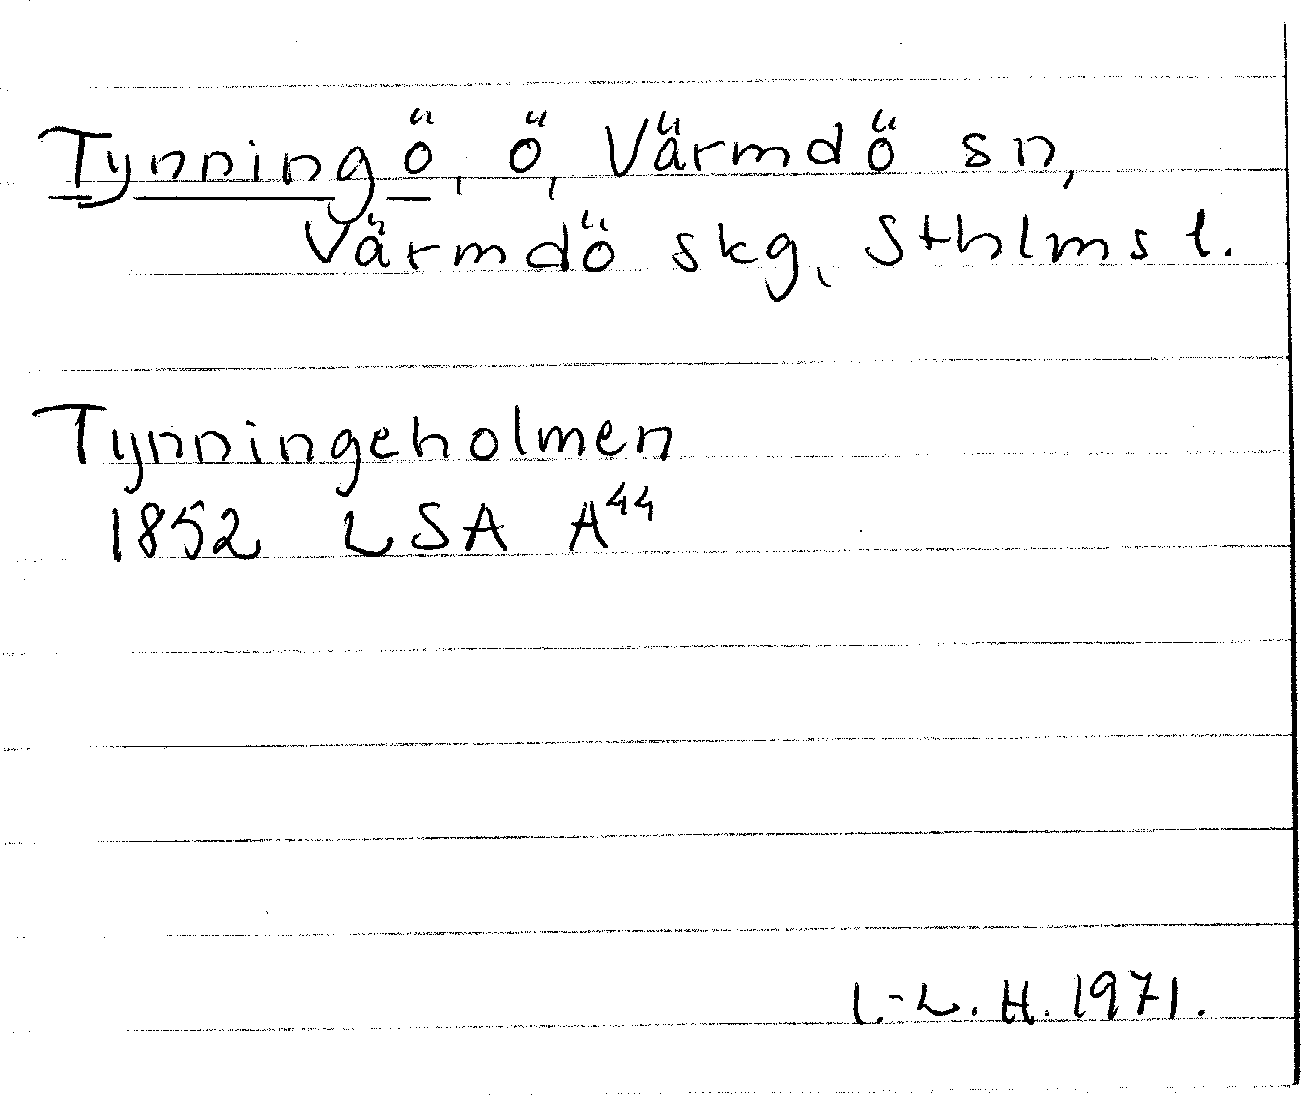 Tynningö, ö, Värmdö sn,
Värmdö skg, Sthlms l.
Tynningeholmen
1852 LSA A⁴⁴
I.-L. H. 1971.